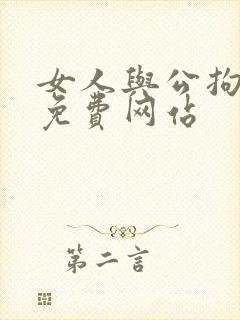 女人與公拘
免費网佔
第二言